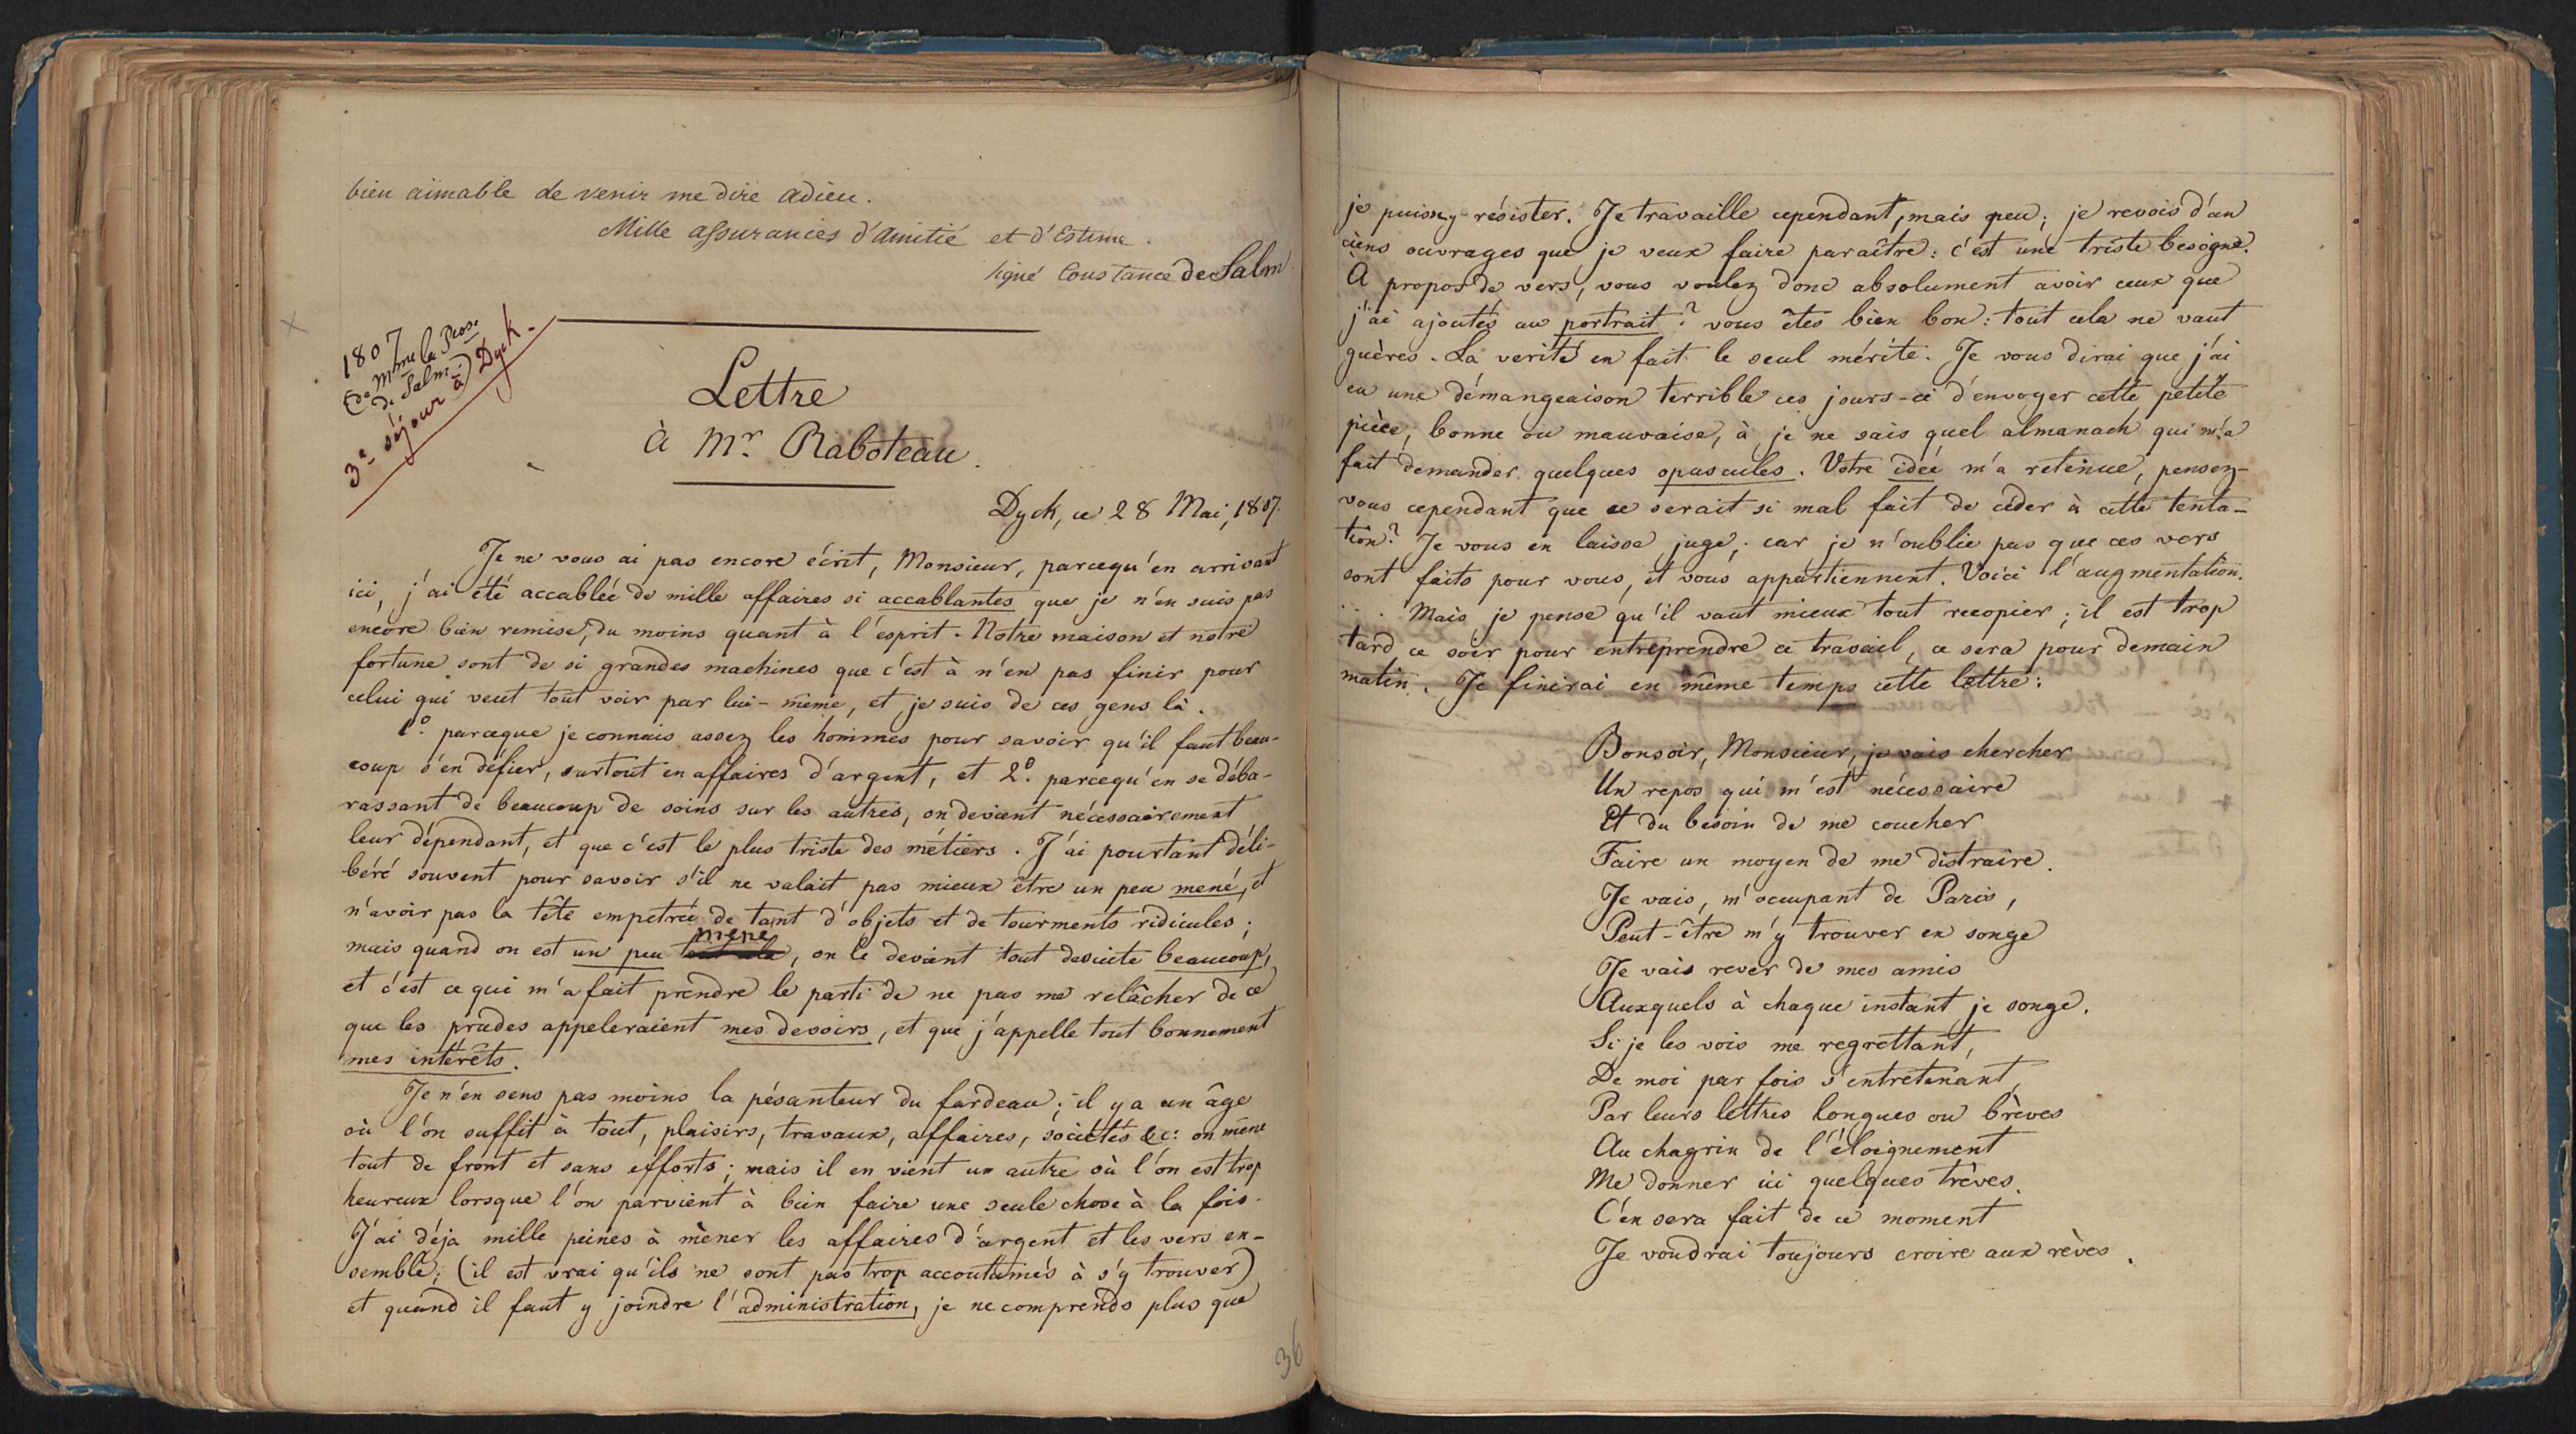 bien aimable de venir me dire adieu.
Mille assurances d'Amitié et d'Estime.
signé Constance de Salm
1807
(de Mme la Psse
de Salm.)
3e. séjour à Dyck.
Lettre
à Mr. Raboteau.
Dyck, ce 28 Mai, 1807.
Je ne vous ai pas encore écrit, Monsieur, parcequ'en arrivant
ici, j'ai été accablée de mille affaires si accablantes que je n'en suis pas
encore bien remise, du moins quant à l'esprit. Notre maison et notre
fortune sont de si grandes machines que c'est à n'en pas finir pour
celui qui veut tout voir par lui-même, et je suis de ces gens là.
1o. parceque je connais assez les hommes pour savoir qu'il faut beau-
coup s'en défier, surtout en affaires d'argent, et 2o. parcequ'en se déba-
rassant de beaucoup de soins sur les autres, on devient nécessairement
leur dépendant, et que c'est le plus triste des métiers. J'ai pourtant déli-
béré souvent pour savoir s'il ne valait pas mieux être un peu mené, et
n'avoir pas la tête empetrée de tant d'objets et de tourments ridicules;
mais quand on est un peu mené, on le devient tout desuite beaucoup,
et c'est ce qui m'a fait prendre le parti de ne pas me relâcher de ce
que les prudes appeleraient mes devoirs, et que j'appelle tout bonnement
mes intérêts.
Je n'en sens pas moins la pésanteur du fardeau; il y a un âge
où l'on suffit à tout, plaisirs, travaux, affaires, sociétés &c: on mène
tout de front et sans efforts; mais il en vient un autre où l'on est trop
heureux lorsque l'on parvient à bien faire une seule chose à la fois.
J'ai déja mille peines à mèner les affaires d'argent et les vers en-
semble; (il est vrai qu'ils ne sont pas trop accoutumés à s'y trouver)
et quand il faut y joindre l'administration, je ne comprends plus que
36
je puisse y résister. Je travaille cependant, mais peu; je revois d'an
ciens ouvrages que je veux faire paraître: c'est une triste besogne.
A propos de vers, vous voulez donc absolument avoir ceux que
j'ai ajoutés au portrait? vous êtes bien bon: tout cela ne vaut
guères. La verité en fait le seul mérite. Je vous dirai que j'ai
eu une démangeaison terrible ces jours-ci d'envoyer cette petite
pièce, bonne ou mauvaise, à je ne sais quel almanach qui m'a
fait demander quelques opuscules. Votre idée m'a retenue, pensez-
vous cependant que ce serait si mal fait de céder à cette tenta-
tion? Je vous en laisse juge; car je n'oublie pas que ces vers
sont faits pour vous, et vous appartiennent. Voici l'augmentation.
.... Mais je pense qu'il vaut mieux tout recopier; il est trop
tard ce soir pour entreprendre ce travail, ce sera pour demain
matin. Je finirai en même temps cette lettre:
Bonsoir, Monsieur, je vais chercher
Un repos qui m'est nécessaire
Et du besoin de me coucher
Faire un moyen de me distraire.
Je vais, m'occupant de Paris,
Peut-être m'y trouver en songe
Je vais rever de mes amis
Auxquels à chaque instant je songe.
Si je les vois me regrettant,
De moi par fois s'entretenant,
Par leurs lettres longues ou brèves
Au chagrin de l'éloignement
Me donner ici quelques trèves.
C'en sera fait de ce moment
Je voudrai toujours croire aux rèves.